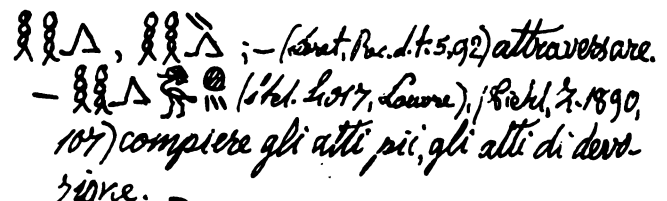 𓎛𓎛𓂻, 𓎛𓎛𓏭𓂻; – (Rec. d. t. 5, 92) attraversare.
– 𓎛𓎛𓂻𓅜𓐍𓏥 (stel. Louvre), ; Piehl, Z. 1890,
107) compiere gli atti pii, gli atti di devo-
zione. –